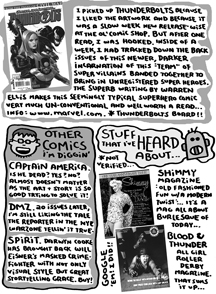 I PICKED UP THUNDERBOLTS BECAUSE
I LIKED THE ARTWORK AND BECAUSE IT
WAS A SLOW WEEK NEW RELEASE-WISE
AT THE OL' COMIC SHOP. BUT AFTER ONE
READ, I WAS HOOKED. INSIDE OF A
WEEK, I HAD TRACKED DOWN THE BACK
ISSUES OF THIS NEWER, DARKER
INFORMATION OF THIS "TEAM" OF
SUPER VILLAINS BANDED TOGETHER TO
BRING IN UNREGISTERED SUPER HEROES.
THE SUPERB WRITING BY WARREN
ELLIS MAKES THIS SEEMINGLY TYPICAL SUPERHERO COMIC
VERY MUCH UN-CONVENTIONAL AND WELL WORTH A READ...
INFO: WWW.MARVEL.COM. * THUNDERBOLTS BOARD!!
OTHER
COMICS
I'M DIGGIN'
CAPTAIN AMERICA
IS HE DEAD? IT'S NOT?
ALMOST DOESN'T MATTER
AS THE ART & STORY IS SO
GOOD TRYING TO SOLVE IT!
DMZ. 20 ISSUES LATER,
I'M STILL LIKING THE TAKE
THE REPORTER IN THE NYC
WARZONE TELLIN' IT TRUE.
SPIRIT. DARWYN COOKE
HAS BROUGHT BACK WILL
EISNER'S MASKED CRIME-
FIGHTER WITH NOT ONLY
VISUAL STYLE BUT GREAT
STORYTELLING. GRACE, BUY!
STUFF
THAT I'VE HEARD
ABOUT...
* NOT
VERIFIED...
SHIMMY
MAGAZINE
"OLD FASHION'D
FUN W/A MODERN
TWIST"... IT'S A
MAG ALL ABOUT
BURLESQUE OF
TODAY...
GOOGLE
'EM, EDIE!!
BLOOD &
THUNDER
ALL GIRL
ROLLER
DERBY
MAGAZINE.
THAT SUMS
IT UP...